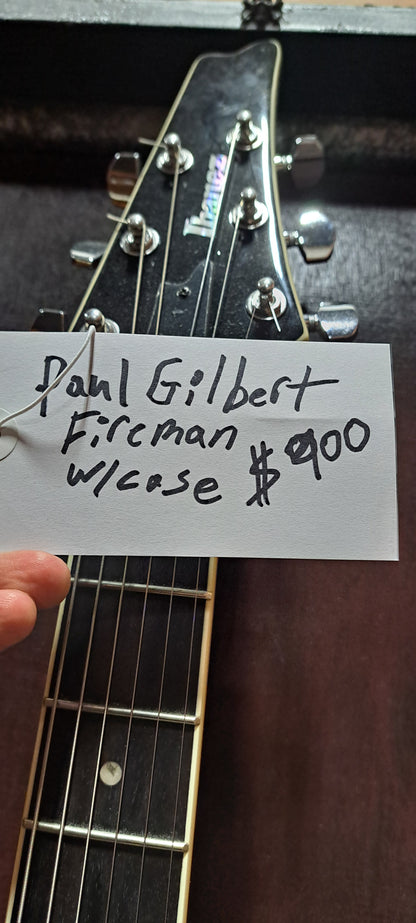 Ibanez
Paul Gilbert
Fireman
w/case $900